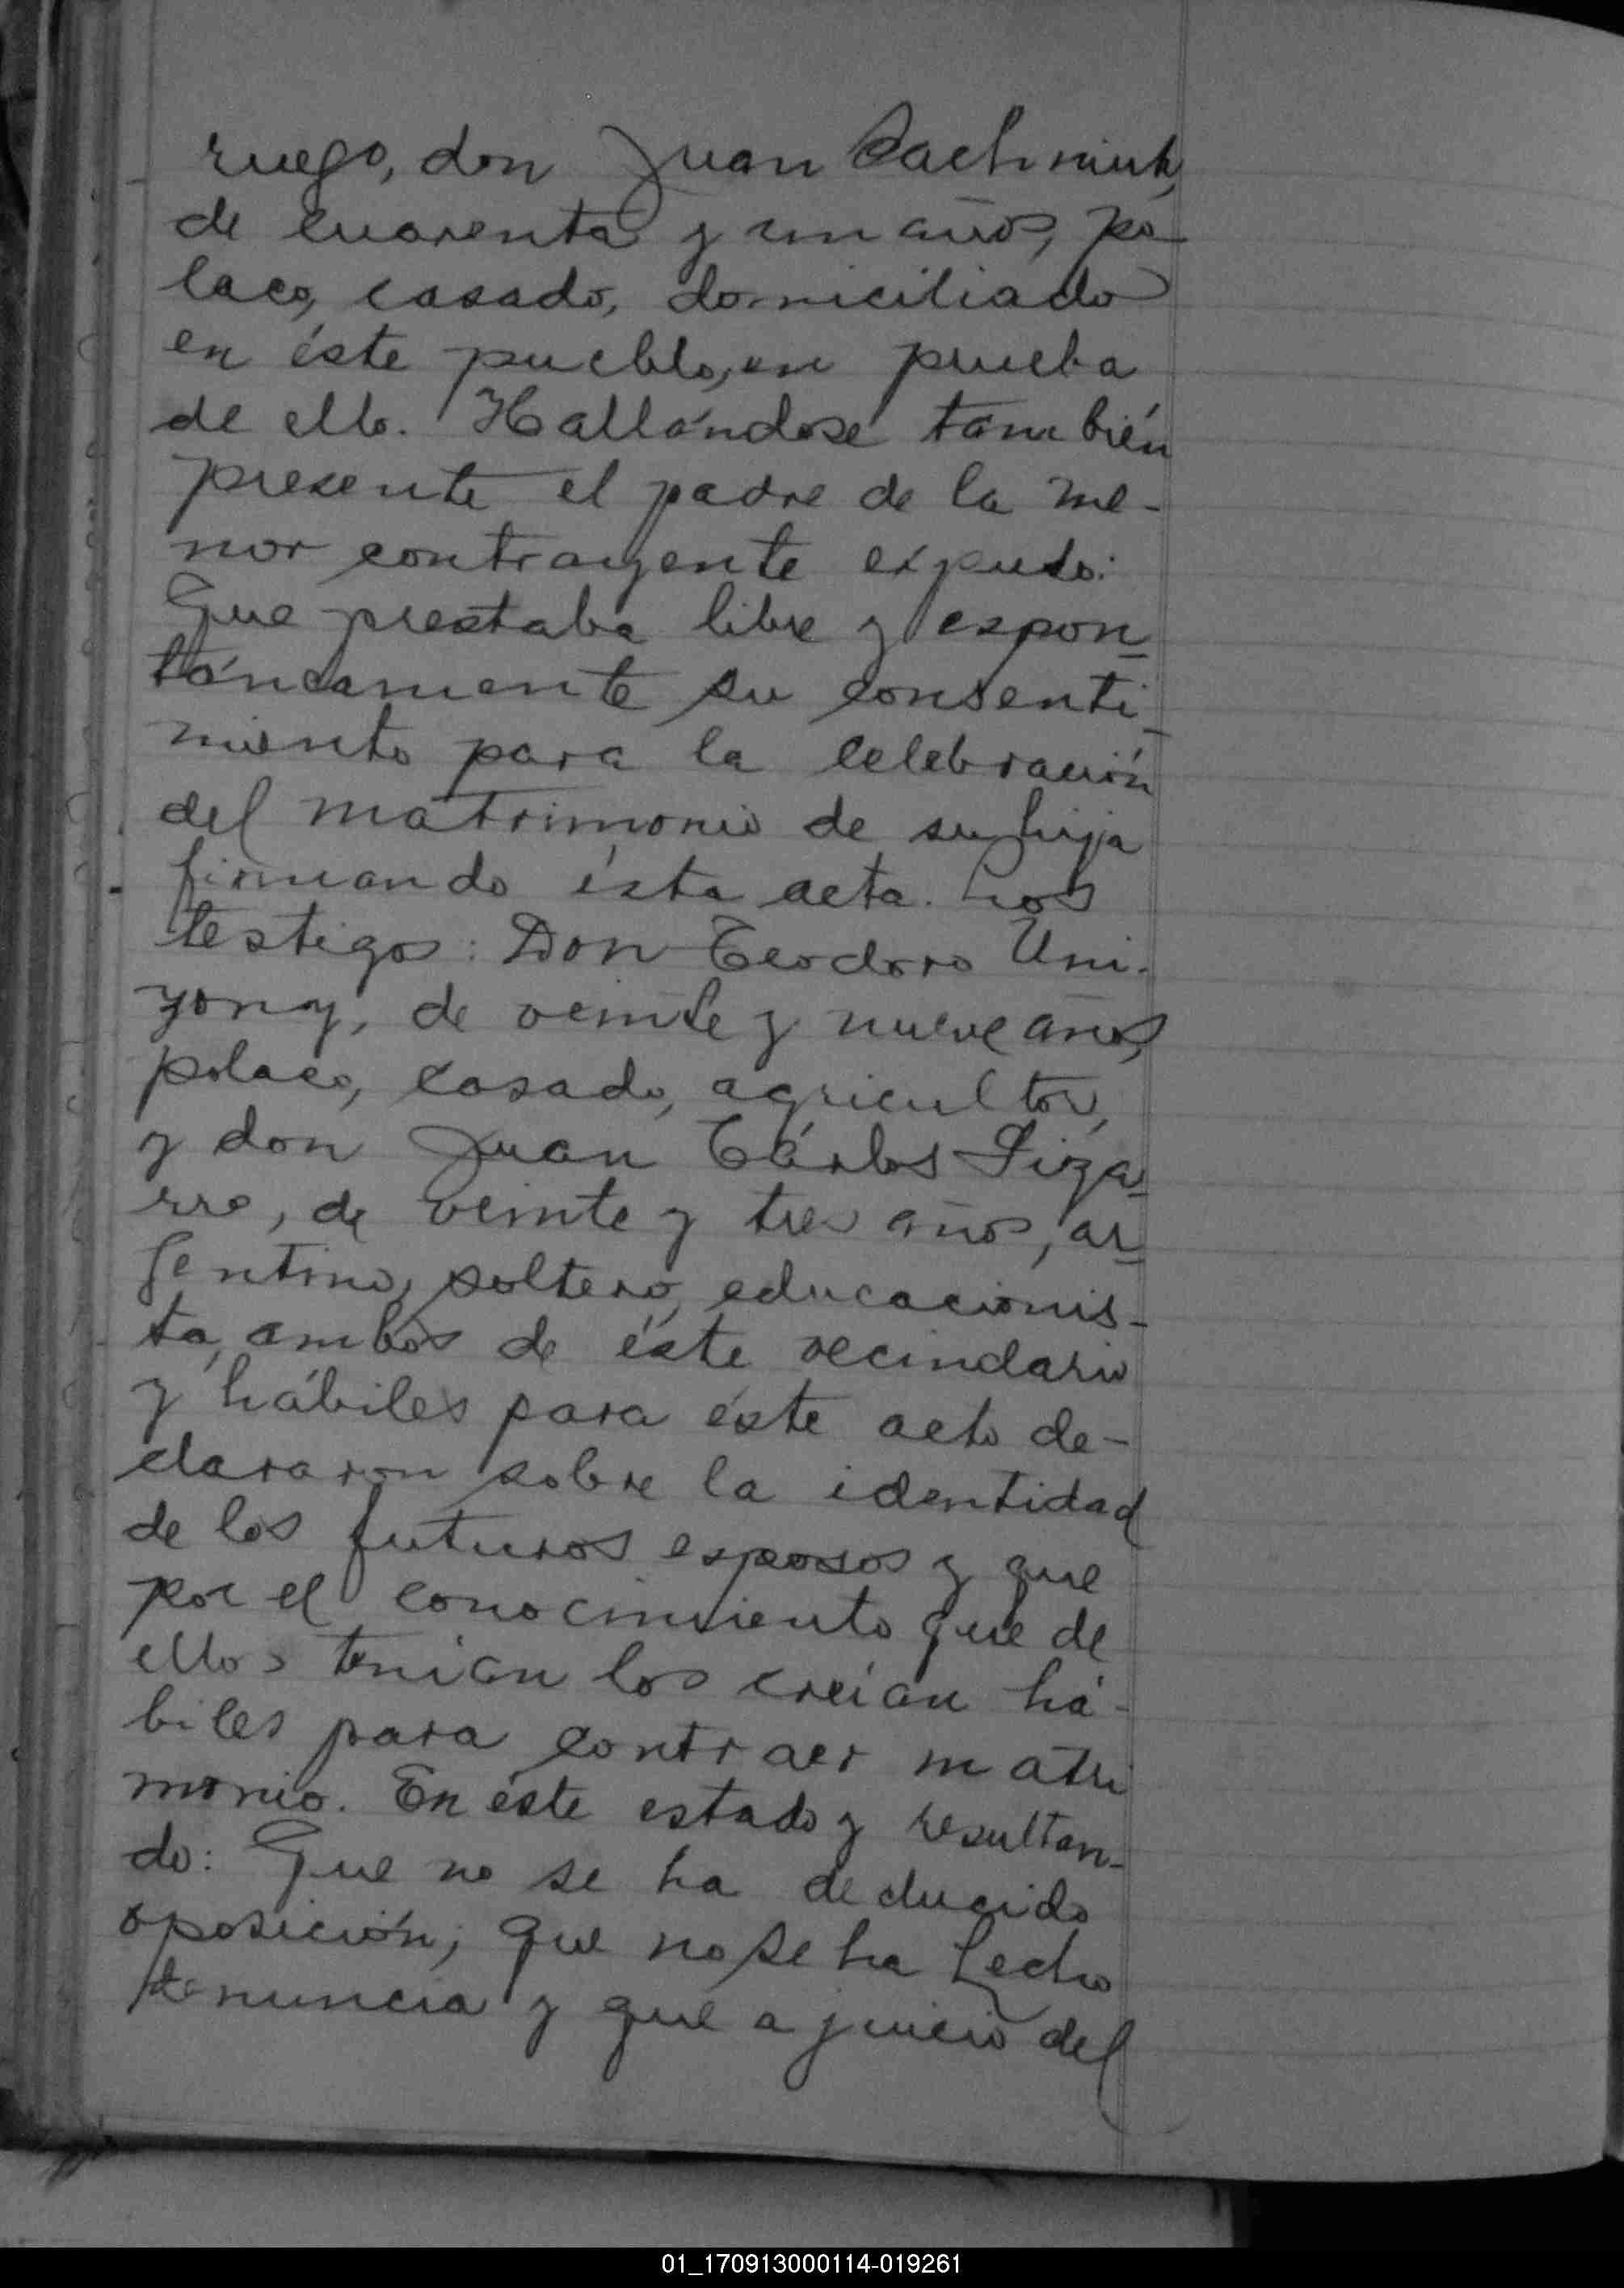 ruego, don Juan Sachniuk,
de cuarenta y un años, po-
laco, casado, domiciliado
en éste pueblo, en prueba
de ello. Hallándose también
presente el padre de la me-
nor contrayente expuso:
Que prestaba libre y espon-
táneamente su consenti-
miento para la celebración
del matrimonio de su hija
firmando ésta acta. Los
testigos: Don Teodoro
de veinte y nueve años,
polaco, casado, agricultor,
y don Juan Cárlos Liza-
rre, de veinte y tres años, ar-
gentino, soltero, educacionis-
ta, ambos de éste vecindario
y hábiles para éste acto de-
clararon sobre la identidad
de los futuros esposos y que
por el conocimiento que de
ellos tenían los creían há-
biles para contraer matri
monio. En éste estado y resultan-
do: Que no se ha deducido
oposición; que no se ha hecho
denuncia y que a juicio del
01_170913000114-019261